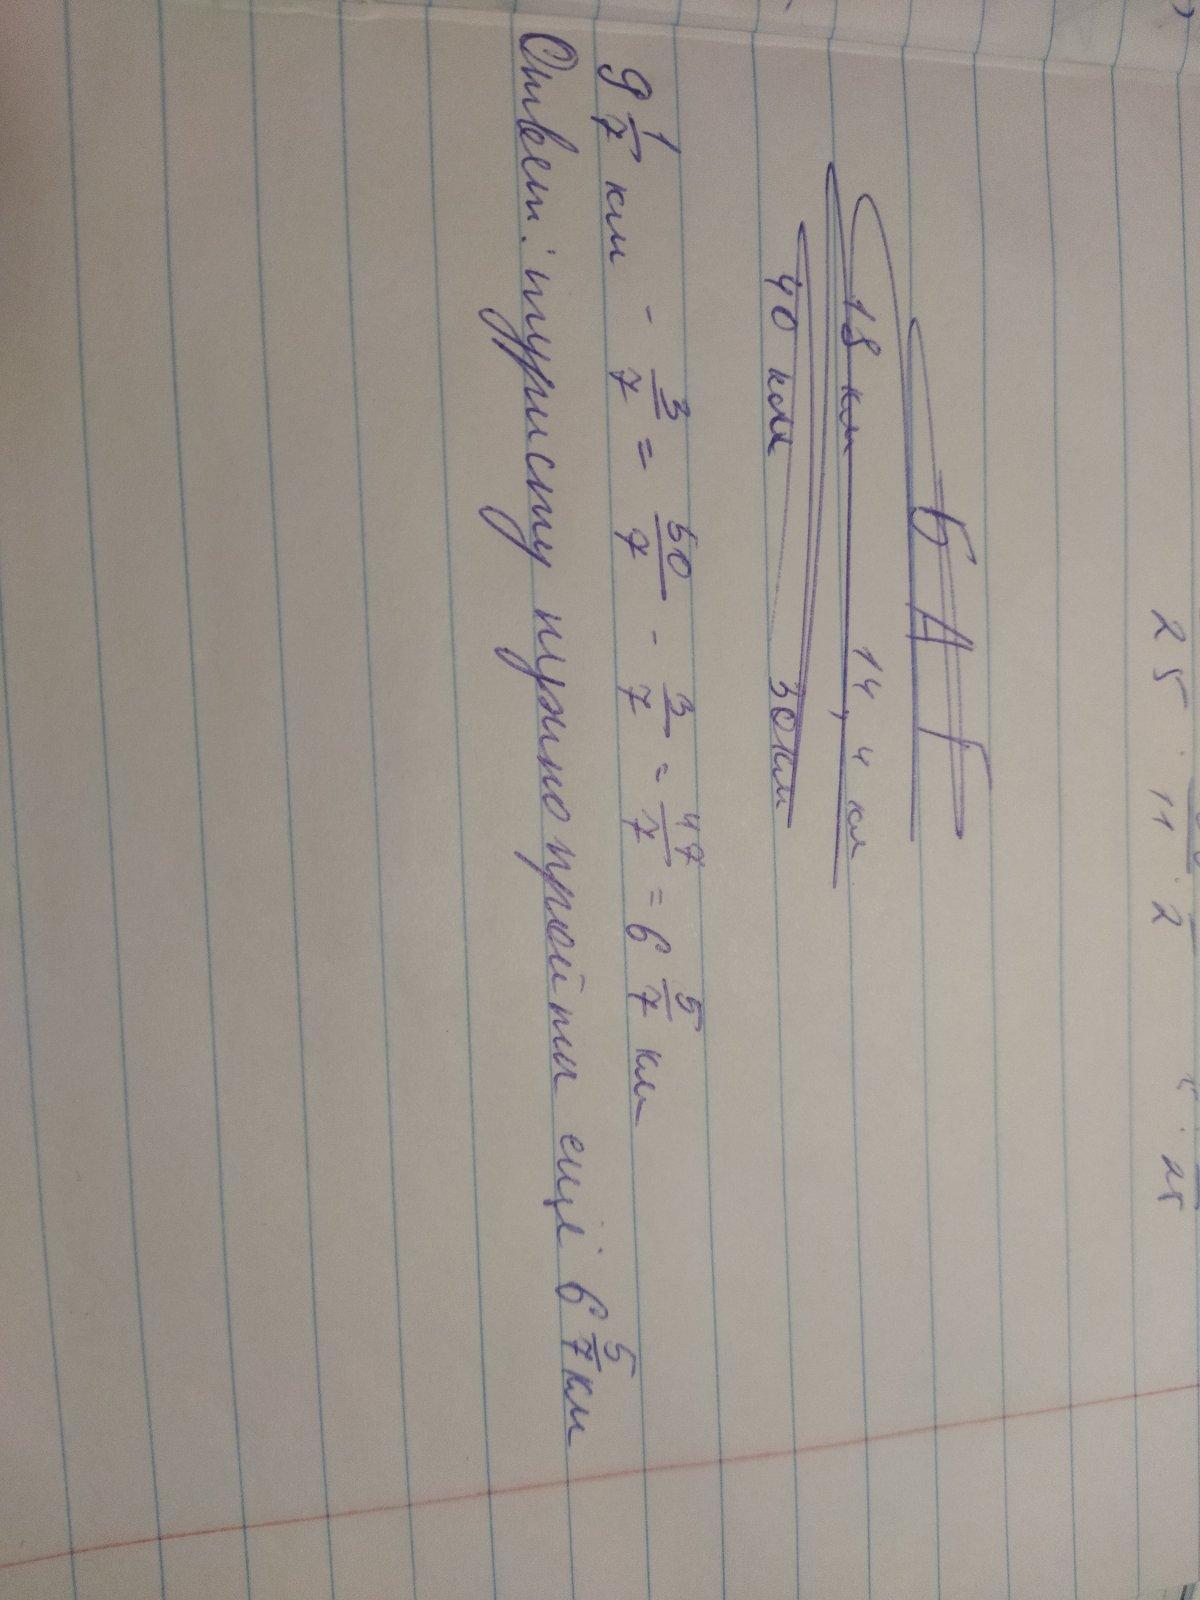 25 · 11 · 2 25
Б А Г
18 км 14,4 км
40 км 30 км
9 1/7 км - 3/7 = 50/7 - 3/7 = 47/7 = 6 5/7 км
Ответ: туристу нужно пройти ещё 6 5/7 км